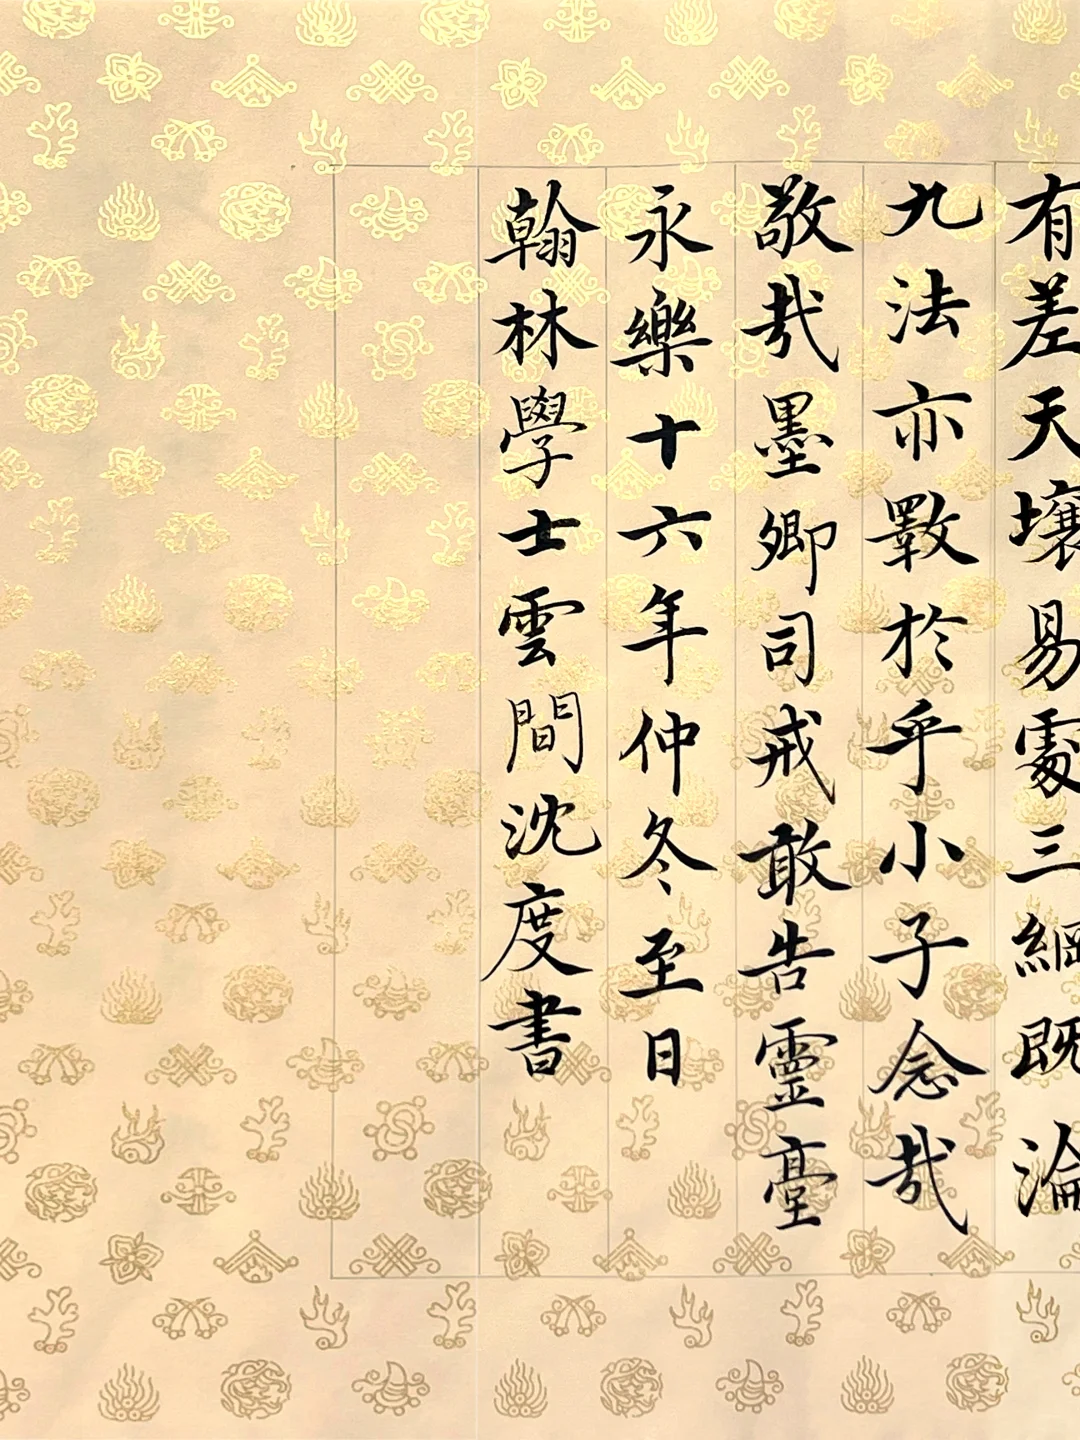 有差天壤易處三綱既淪
九法亦斁於乎小子念哉
敬哉墨卿司戒敢告靈臺
永樂十六年仲冬至日
翰林學士雲間沈度書